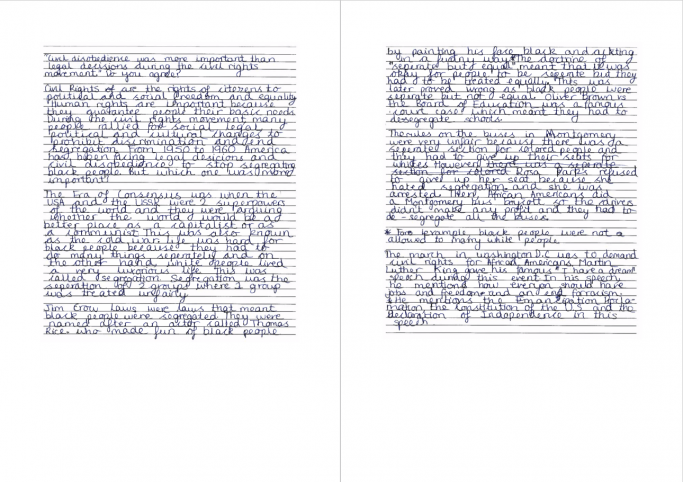 "Civil disobedience was more important than
legal decisions during the civil rights
movement" Do you agree?
Civil Rights of are the rights of citizens to
political and social freedom and equality
Human rights are important because
they guarantee people their basic needs
During the civil rights movement many
people rallied for social, legal,
political and cultural changes to
prohibit discrimination and end
segregation. From 1950 to 1960 America
had been using legal desicions and
civil disobedience to stop segregating
black people. But which one was more
important?
The Era of Consensus was when the
USA and the USSR were 2 superpowers
of the world and they were arguing
whether the world would be a
better place as a capitalist or as
a communist. This was also known
as the cold war. Life was hard for
black people because they had to
do many things seperately and on
the other hand, white people lived
a very luxurious life. This was
called segregation. Segregation was the
seperation of 2 groups where 1 group
was treated unfairly.
Jim Crow laws were laws that meant
black people were segregated. They were
named after an actor called Thomas
Rice who made fun of black people
by painting his face black and ackting
in a funny way.* The doctrine of
"seperate but equal" meant that it was
okay for people to be seperate but they
had to be treated equally. This was
later proved wrong as black people were
seperate but not equal. Oliver Brown vs
the Board of Education was a famous
court case which meant they had to
dessegregate schools.
The rules on the buses in Montgomery
were very unfair because there was a
seperated section for colored people and
they had to give up their seats for
whites. However, there was a seperate
section for colored Rosa Parks refused
to give up her seat because she
hated segregation and she was
arrested. Then, African Americans did
a Montgomery bus boycott so the drivers
didn't make any profit and they had to
de-segregate all the buses.
* For example, black people were not
allowed to marry white people.
The march in Washington D.C was to demand
civil rights for African Americans. Martin
Luther King gave his famous "I have a dream"
speech during this event. In his speech,
he mentioned how everyone should have
jobs and freedom and an end to racism
He mentions the Emancipation Procla-
mation, the constitution of the U.S and the
declaration of Independence in this
speech.